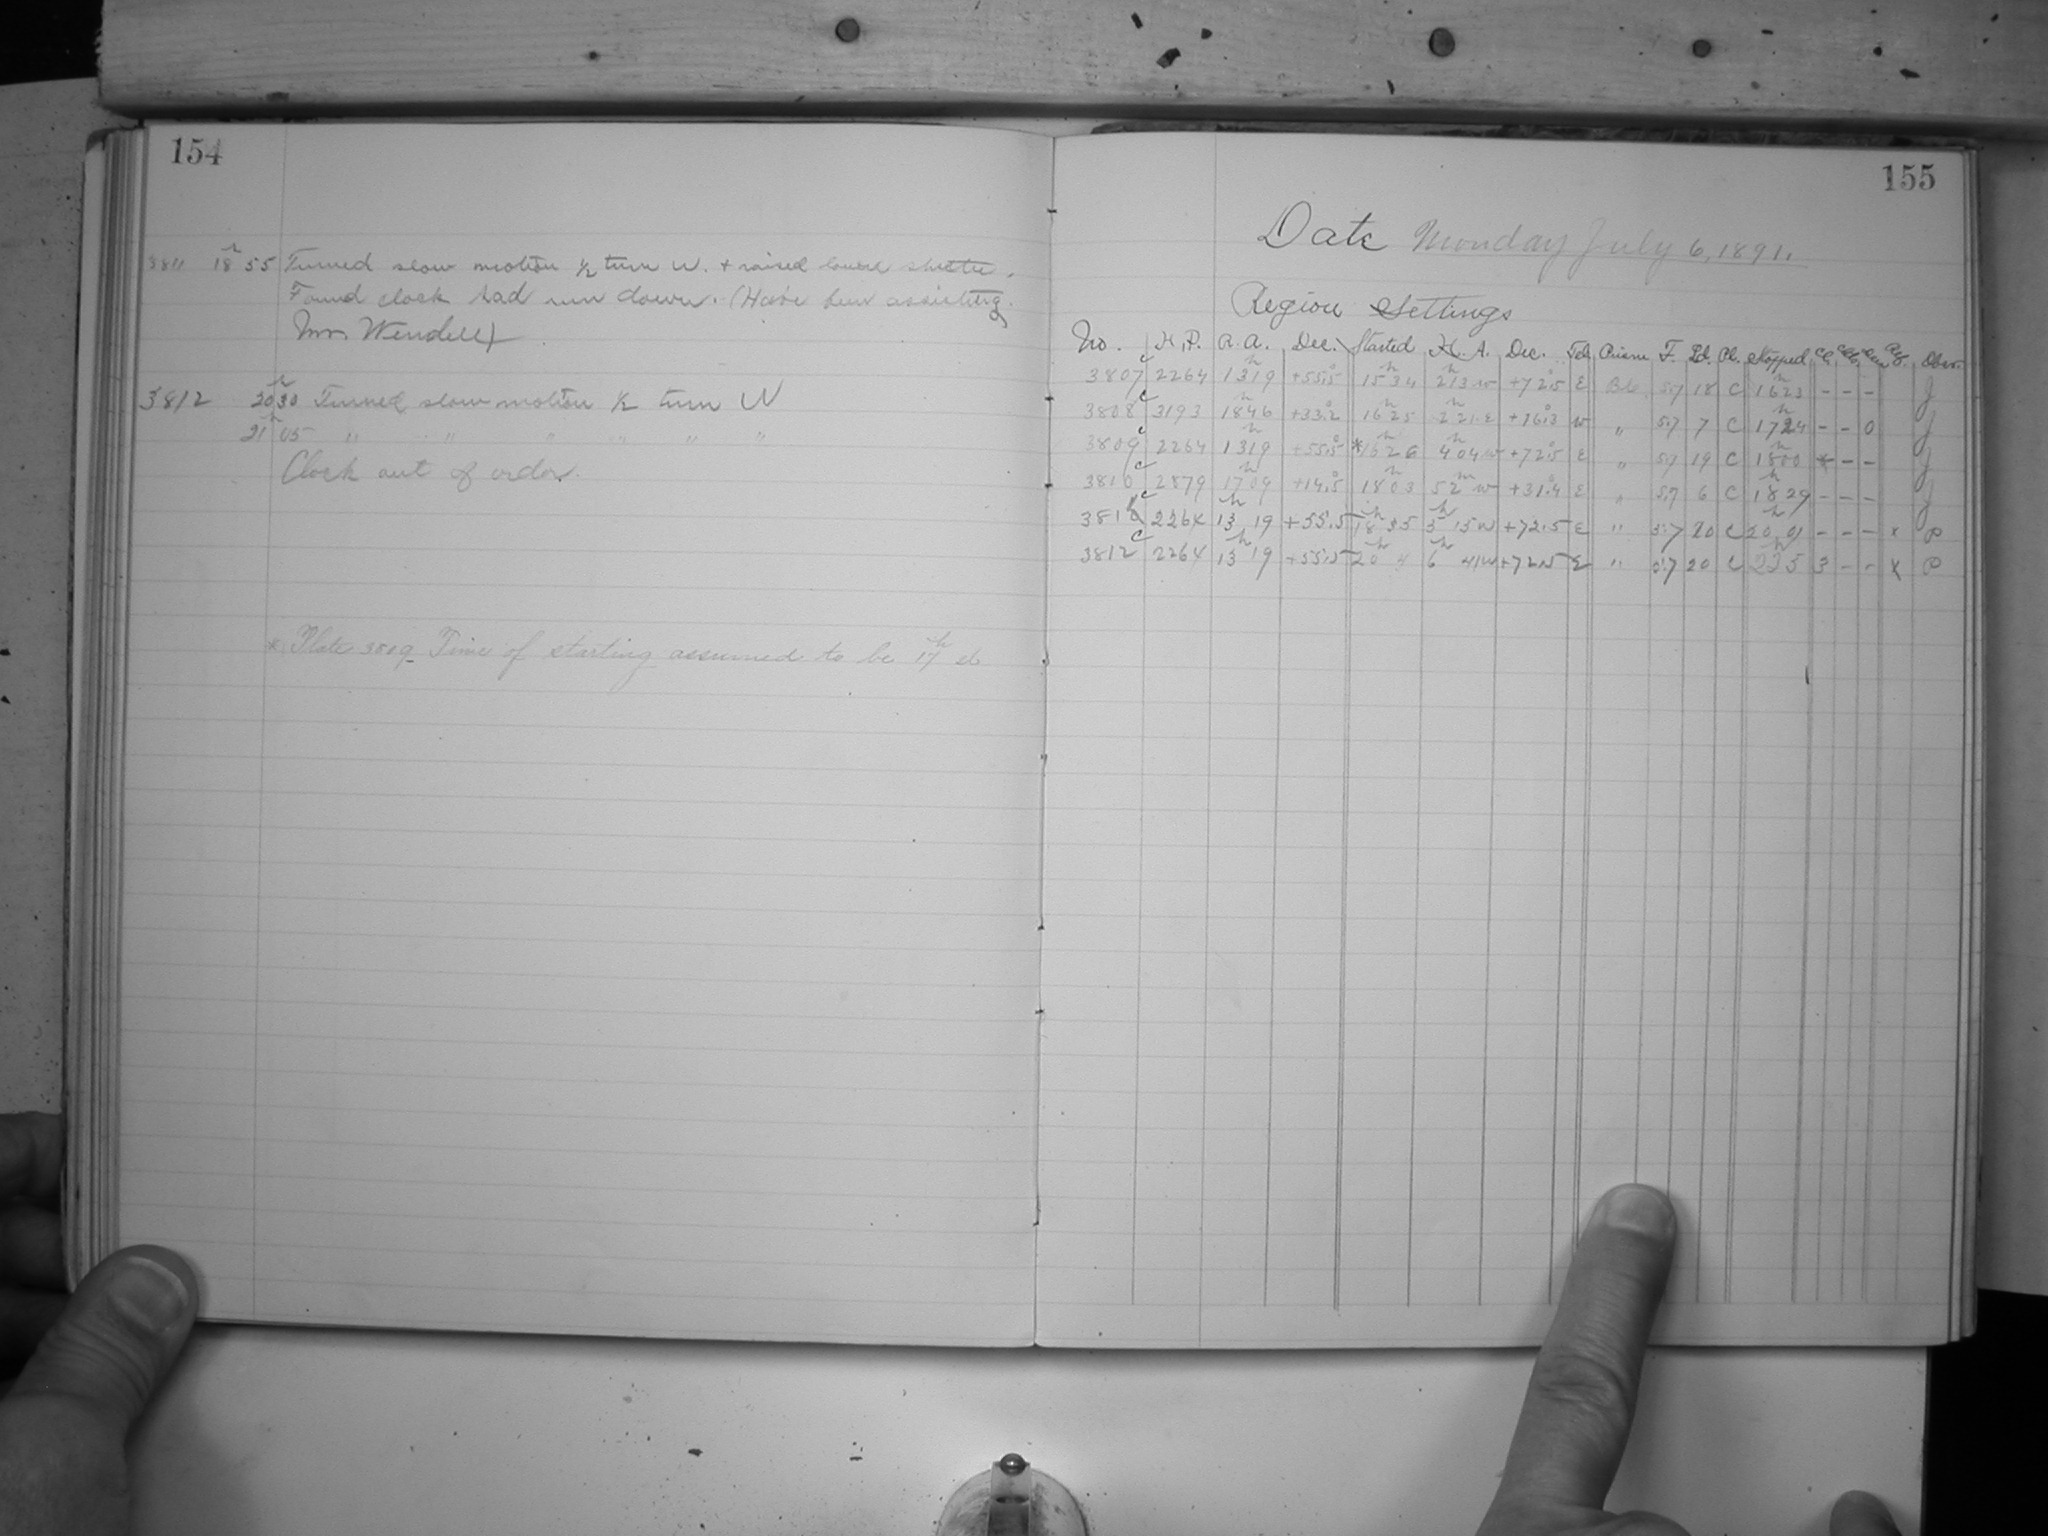 154
3811 18h 55 Turned slow motion ½ turn W. + raised lower shutter.
Found clock had run down. (Have been assisting
Mr. Wendell)
3812 20h 30 Turned slow motion ½ turn W
21h 05 " " " " " "
Clock out of order.
* Plate 3809 Time of starting assumed to be 17h
155
Date Monday July 6, 1891.
Region Settings
No. H.P. R.A. Dec. Started H.A. Dec. Tel. Prism F. Ed. Pl. Stopped Cl. Obsr.
3807 c 2264 13h19 +55.5° 15h34 2h13 w +72.5° E Blc. 5.7 18 C 16h23 - - - J
3808 c 3193 18h46 +33.2° 16h25 2h21 E +16.3° w " 5.7 7 C 17h24 - - 0 J
3809 c 2264 13h19 +55.5° *16h26 4h04 w +72.5° E " 5.7 19 C 18h00 * - - J
3810 c 2879 17h09 +14.5° 18h03 52m w +31.4° E " 5.7 6 C 18h29 - - - J
3811 c 2264 13h 19 +55.5 18h 35 5h 15 w +72.5 E " 5.7 20 C 20h 01 - - - x P
3812 c 2264 13h 19 +55.5 20h 4 6h 41 w +72.5 E " 5.7 20 C 22h 5 3 - - x P